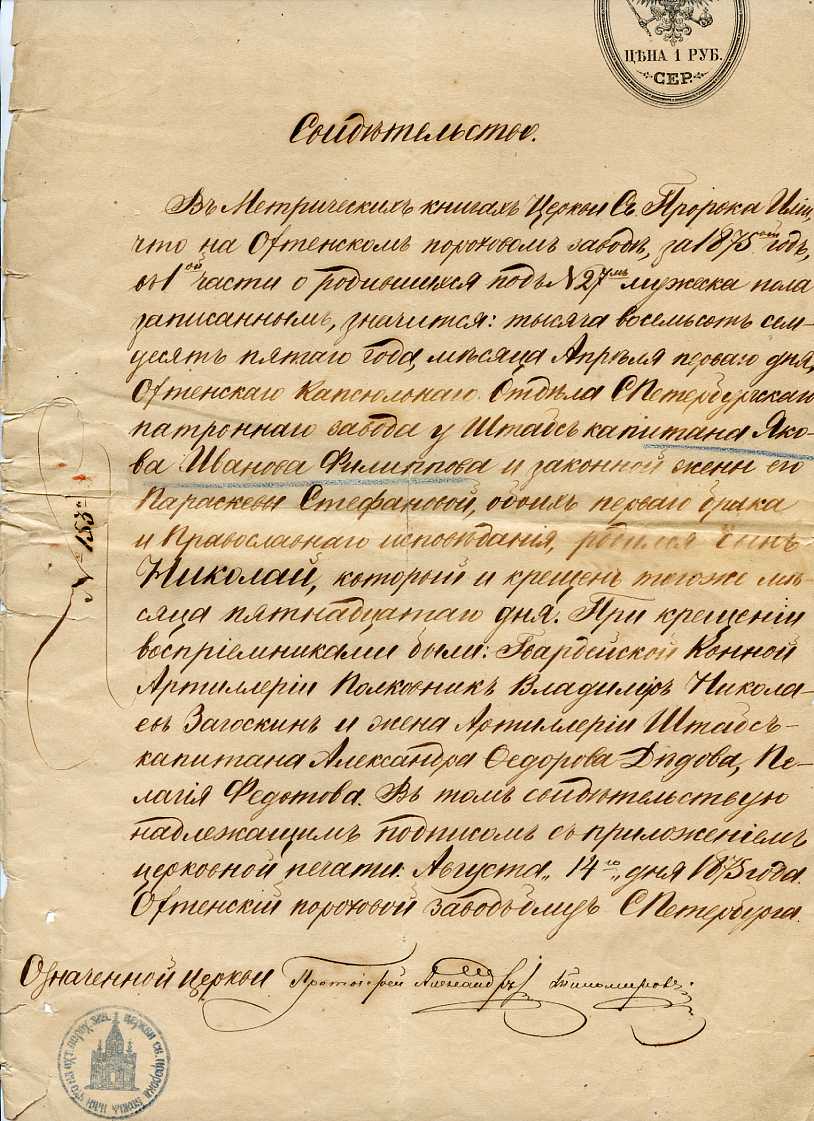 ЦѢНА 1 РУБ.
СЕР.
Свидѣтельство.
Въ Метрическихъ книгахъ Церкви Св. Пророка Иліи,
что на Охтенскомъ пороховомъ заводѣ, за 1875ый годъ,
въ 1ой части о родившихся подъ № 27мъ мужеска пола
записаннымъ, значится: тысяча восемьсотъ семь-
десятъ пятаго года, мѣсяца Апрѣля перваго дня,
Охтенскаго Капсюльнаго Отдѣла СПетербургскаго
патроннаго завода у Штабсъ капитана Яко-
ва Иванова Филиппова и законной жены его
Параскевы Стефановой, обоихъ перваго брака
и Православнаго исповѣданія, родился сынъ
Николай, который и крещенъ тогоже мѣ-
сяца пятнадцатаго дня. При крещеніи
воспріемниками были: Гвардейской Конной
Артиллеріи Полковникъ Владиміръ Никола-
евъ Загоскинъ и жена Артиллеріи Штабсъ-
капитана Александра Ѳедорова Дѣдова, Пе-
лагія Федотова. Въ томъ свидѣтельствую
надлежащимъ подписомъ съ приложеніемъ
церковной печати. Августа „14го„ дня 1875 года.
Охтенскій пороховой заводъ близъ СПетербурга.
№ 153й
Означенной Церкви Протоіерей Александръ Тихомировъ.